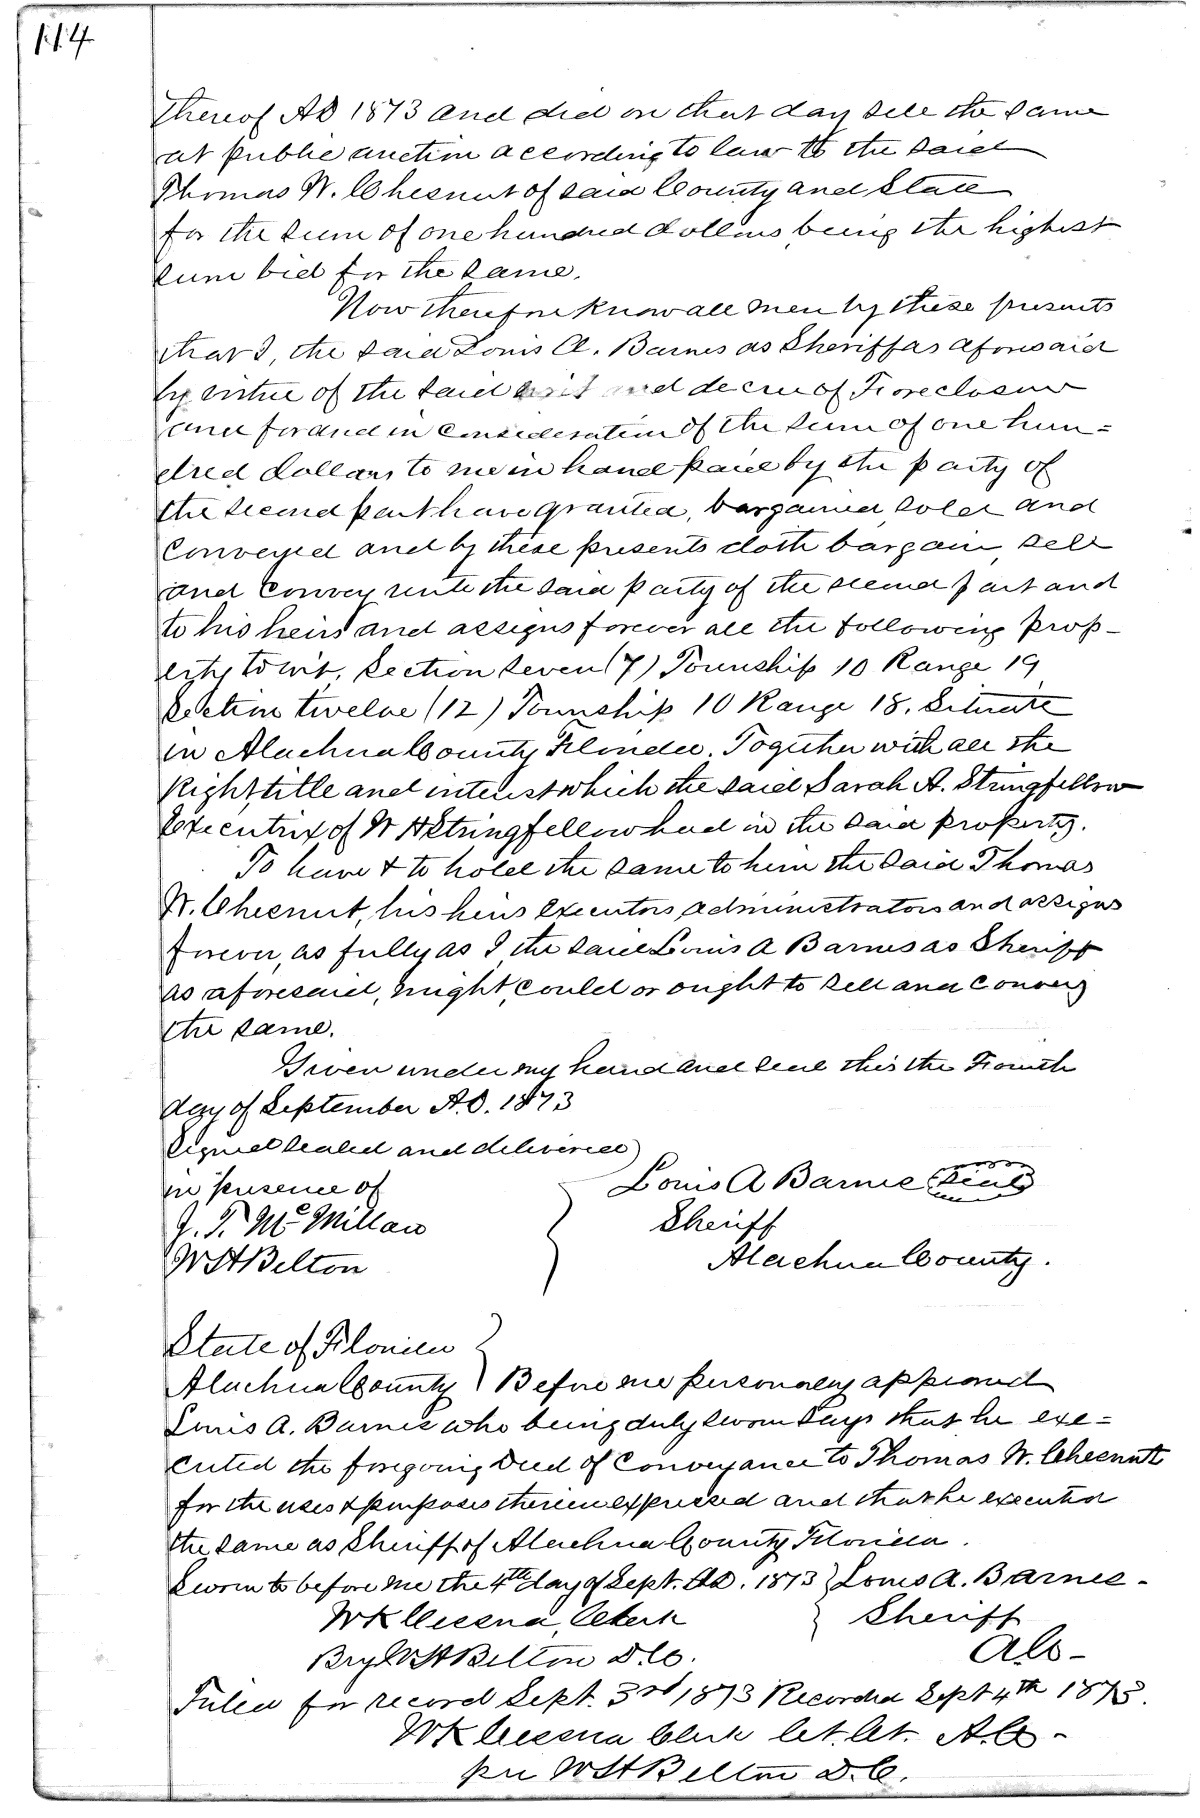 114
thereof AD 1873 and did on that day sell the same
at public auction according to law to the said
Thomas W. Chesnut of said County and State
for the sum of one hundred dollars, being the highest
sum bid for the same.
Now therefore know all men by these presents
that I, the said Louis A. Barnes as Sheriff as aforesaid
by virtue of the said writ and decree of Foreclosure
and for and in consideration of the sum of one hun=
dred dollars to me in hand paid by the party of
the second part have granted, bargained, sold and
conveyed and by these presents doth bargain, sell
and convey unto the said party of the second part and
to his heirs and assigns forever all the following prop-
erty to wit, Section seven (7) Township 10 Range 19
Section twelve (12) Township 10 Range 18. Situate
in Alachua County Florida. Together with all the
Right, title and interest which the said Sarah A. Stringfellow
Executrix of W H Stringfellow had in the said property.
To have & to hold the same to him the said Thomas
W. Chesnut, his heirs executors, administrators and assigns
forever, as fully as I, the said Louis A Barnes as Sheriff
as aforesaid, might, could or ought to sell and convey
the same.
Given under my hand and seal this the Fourth
day of September A.D. 1873
Signed sealed and delivered
in presence of
J. T. McMillan
W H Belton
Louis A Barnes Seal
Sheriff
Alachua County.
State of Florida
Alachua County } Before me personally appeared
Louis A. Barnes who being duly sworn says that he exe=
cuted the foregoing Deed of Conveyance to Thomas W. Chesnut
for the uses & purposes therein expressed and that he executed
the same as Sheriff of Alachua County Florida.
Sworn to before me the 4th day of Sept. AD. 1873 } Louis A. Barnes-
W K Cessna, Clerk Sheriff
By W H Belton D.C. A.Co-
Filed for record Sept. 3rd 1873 Recorded Sept 4th 1873.
W K Cessna Clerk Ct. Ct. A.C-
per W H Belton D.C.